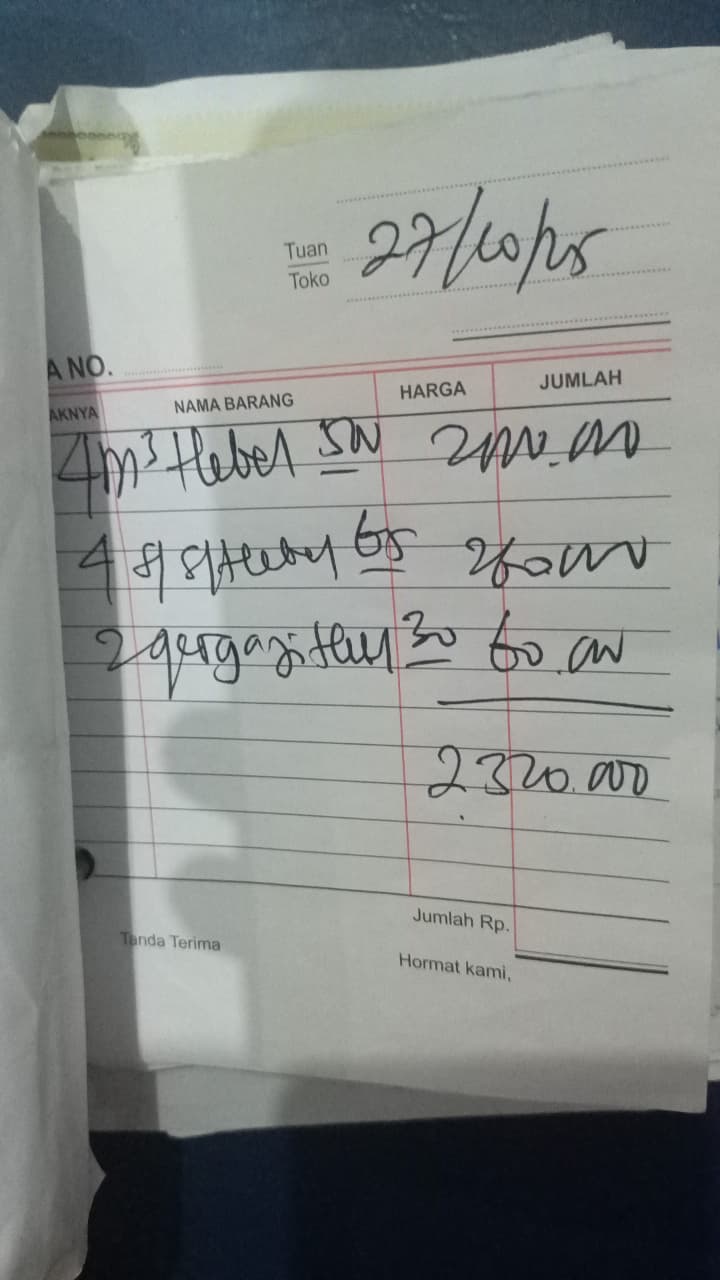 Tuan
Toko 27/10/25
A NO.
AKNYA NAMA BARANG HARGA JUMLAH
4m³ Hebel 500 2000.000
4 Hebel 65 260000
2 gergaji Hebel 30 60.000
2320.000
Jumlah Rp.
Tanda Terima
Hormat kami,